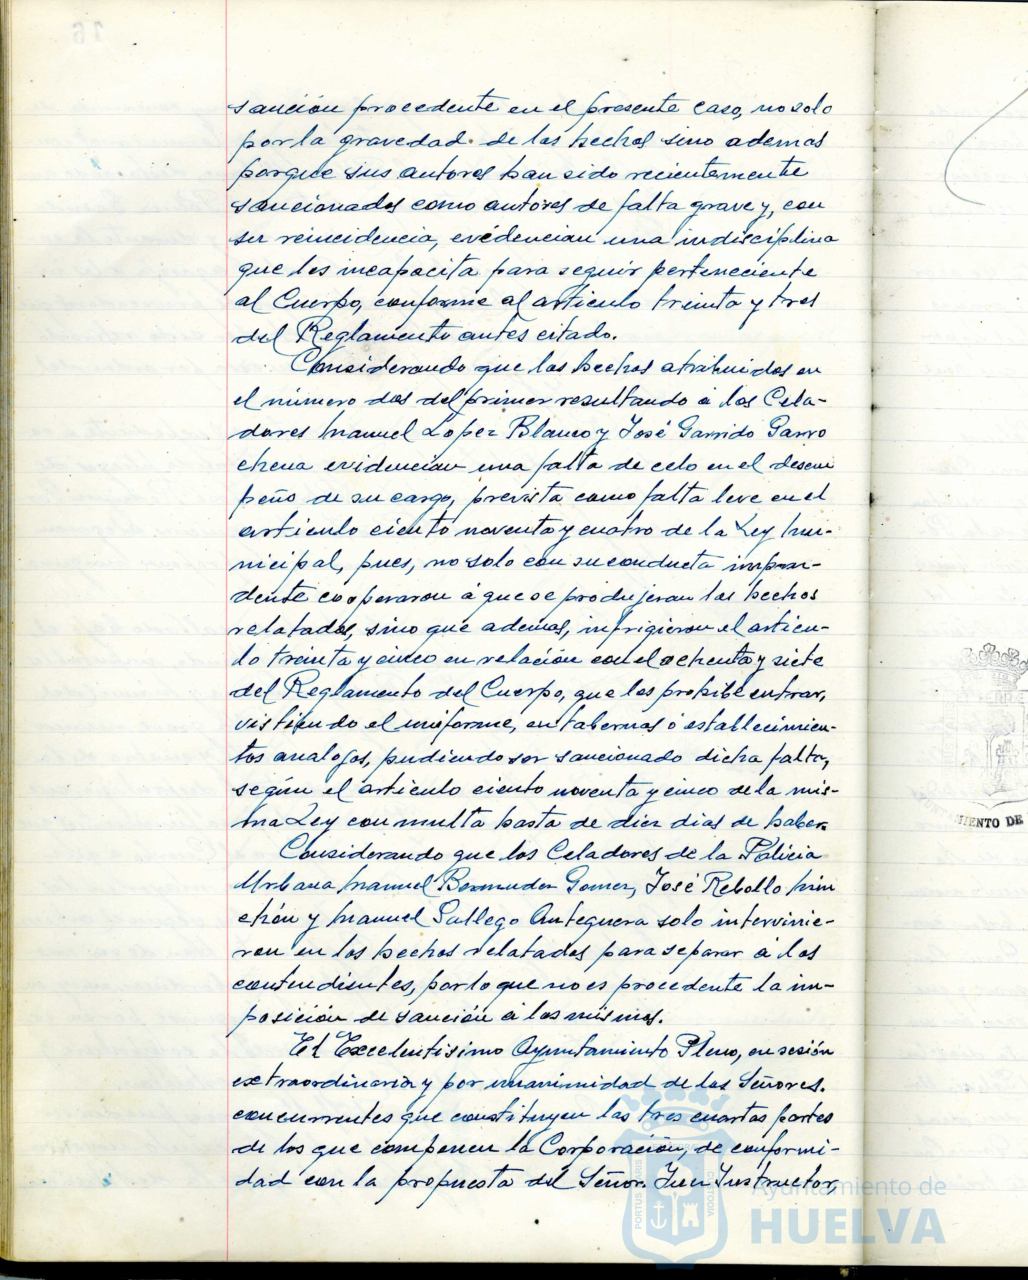 sanción procedente en el presente caso, no solo
por la gravedad de los hechos sino ademas
porque sus autores han sido recientemente
sancionados como autores de falta grave y, con
su reincidencia, evidencian una indisciplina
que les incapacita para seguir perteneciente
al Cuerpo, conforme al articulo treinta y tres
del Reglamento antes citado.
Considerando que los hechos atribuidos en
el número dos del primer resultando á los Cela-
dores Manuel Lopez Blanco y José Garrido Garro
chena evidencian una falta de celo en el desem
peño de su cargo, prevista como falta leve en el
articulo ciento noventa y cuatro de la Ley Mu-
nicipal, pues, no solo con su conducta impru-
dente cooperaron á que se produjeran los hechos
relatados, sino que ademas, infrigieron el articu-
lo treinta y cinco en relación con el ochenta y siete
del Reglamento del Cuerpo, que les prohibe entrar,
vistiendo el uniforme, en tabernas ó establecimien-
tos analogos, pudiendo ser sancionado dicha falta,
según el articulo ciento noventa y cinco de la mis-
ma Ley con multa hasta de diez dias de haber.
Considerando que los Celadores de la Policia
Urbana Manuel Bermudez Gomez, José Rebollo Min
chón y Manuel Gallego Antequera solo intervinie-
ron en los hechos relatados para separar á los
contendientes, por lo que no es procedente la im-
posición de sanción á los mismos.
El Excelentisimo Ayuntamiento Pleno, en sesión
extraordinaria y por unanimidad de los Señores.
concurrentes que constituyen las tres cuartas partes
de los que componen la Corporación, de conformi-
dad con la propuesta del Señor Juez Instructor,
MIENTO DE
PORTUS MARIS
CUSTODIA
Ayuntamiento de
HUELVA